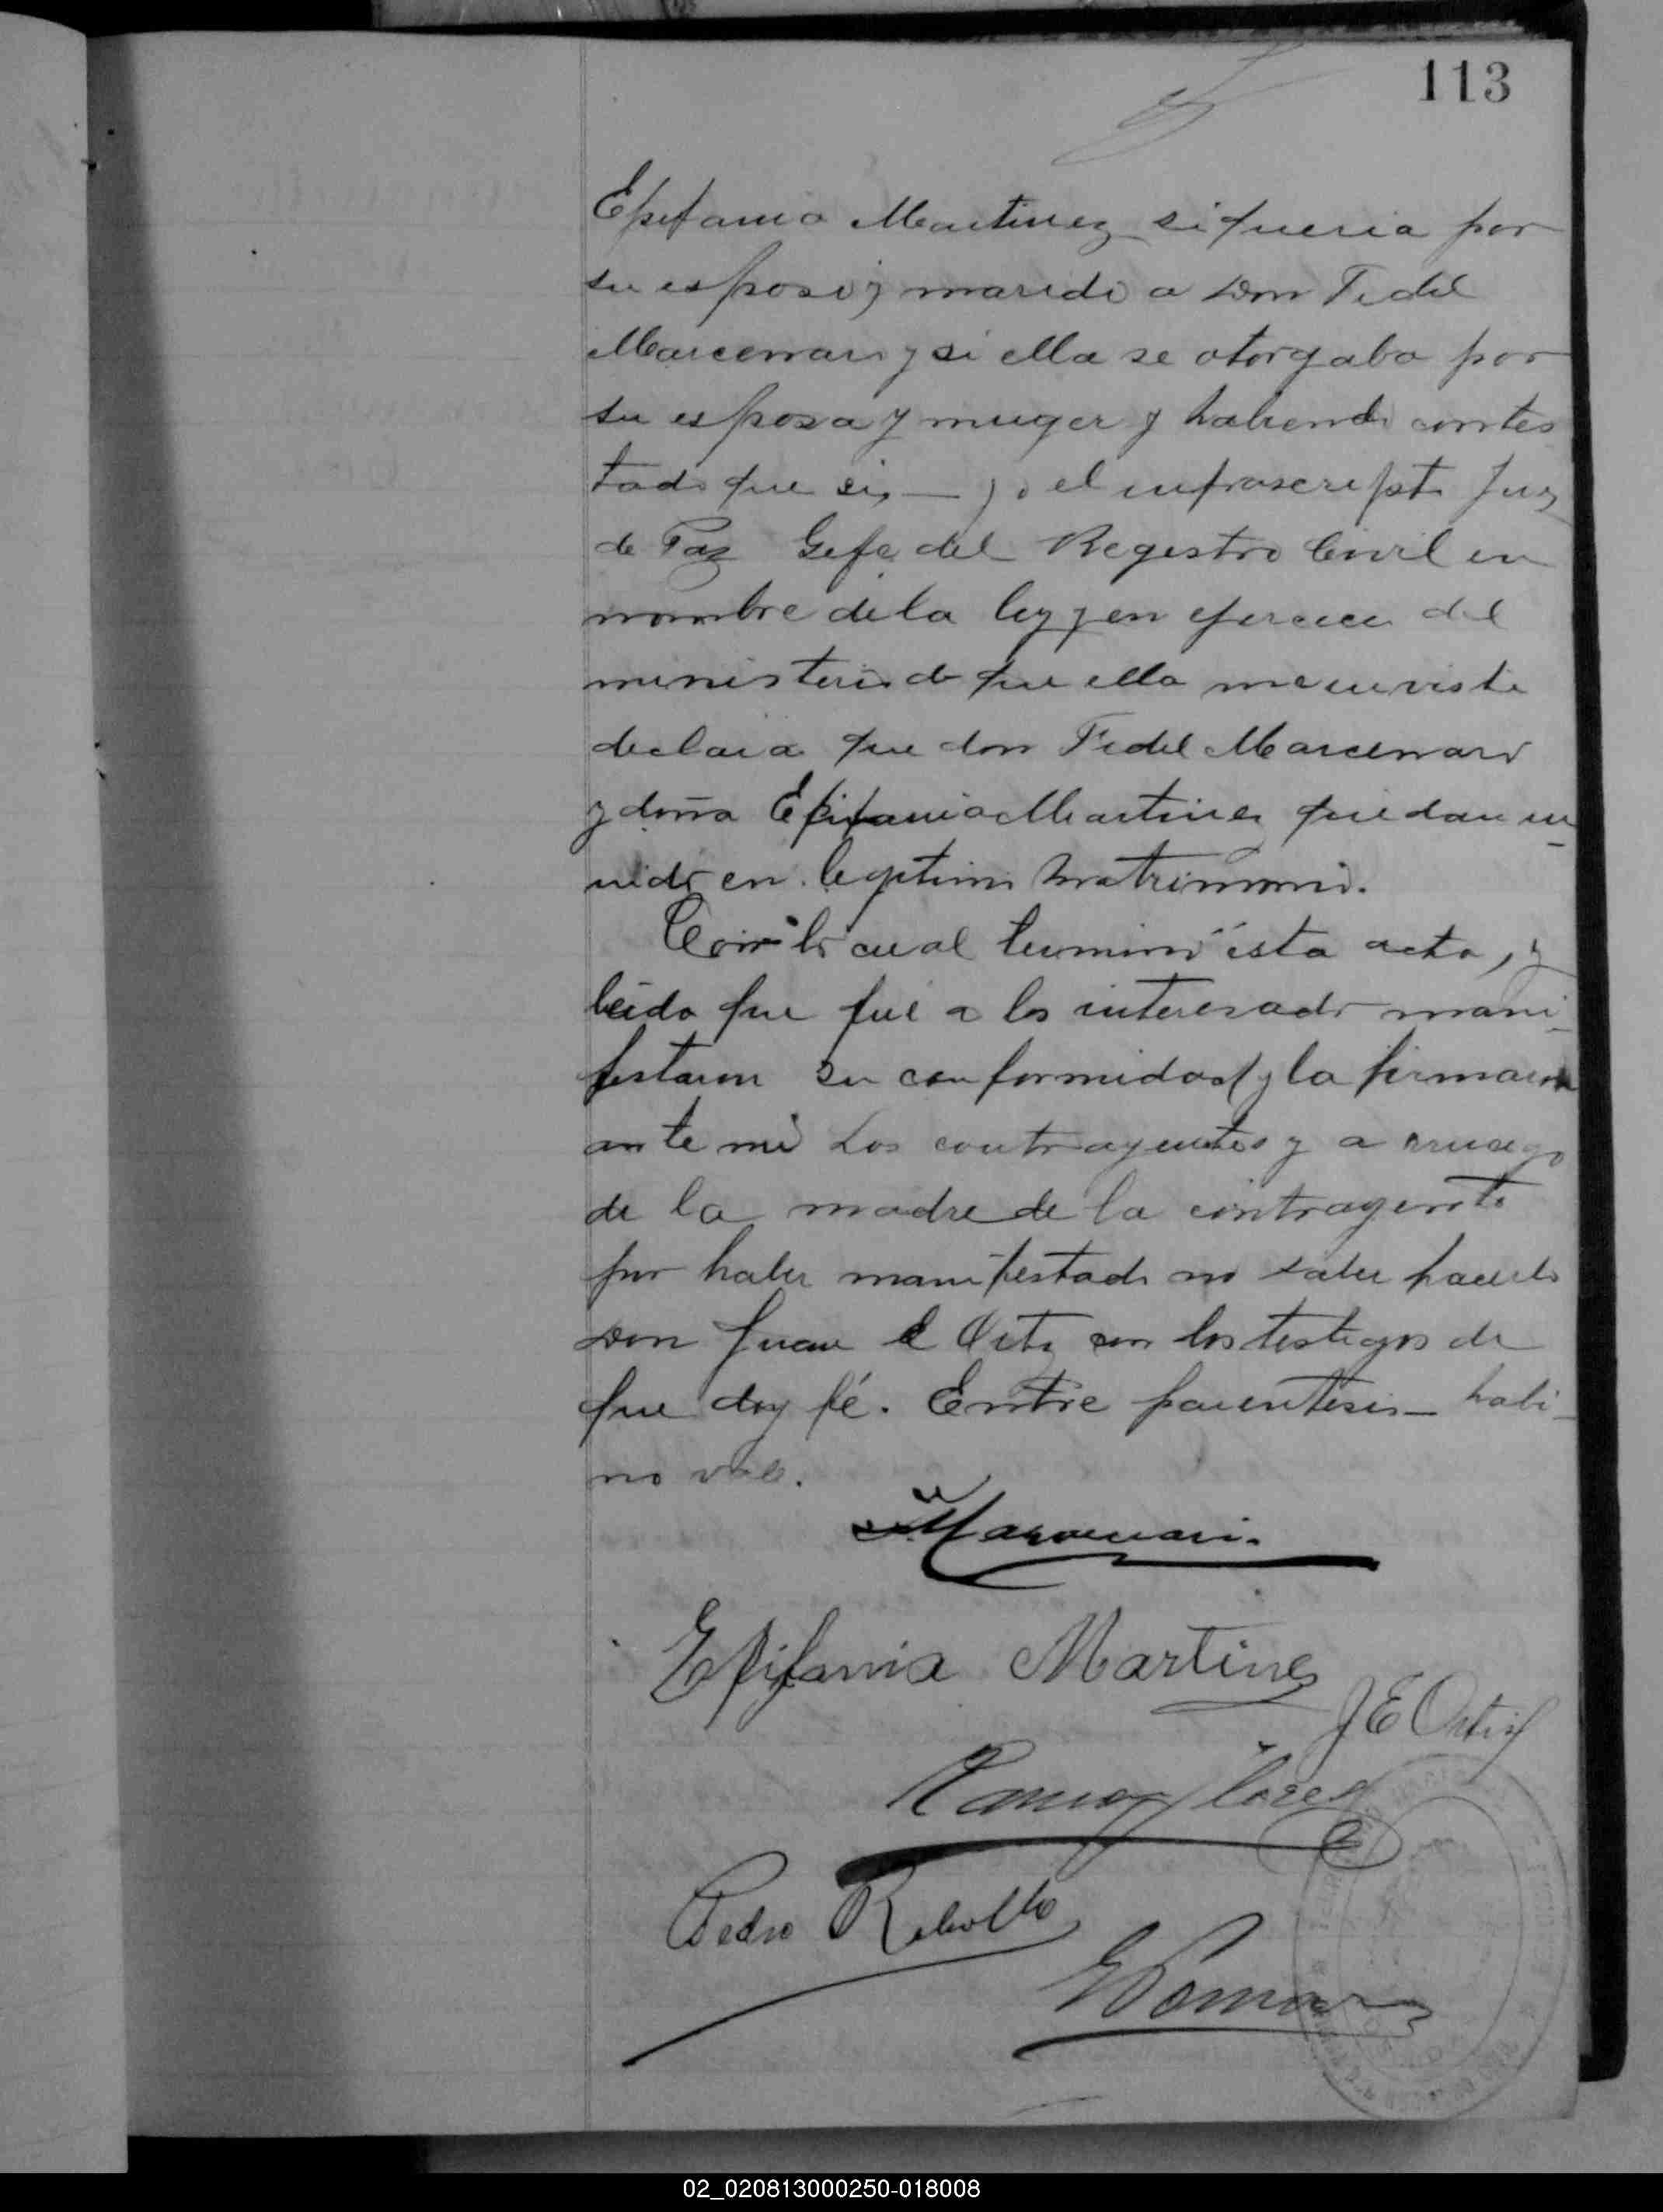 113
Epifania Martinez si queria por
su esposo y marido a Don Fidel
Marcenaro y si ella se otorgaba por
su esposa y muger y habiendo contes
tado que si, — yo el infrascripto Juez
de Paz Gefe del Registro Civil en
nombre de la ley y en ejercicio del
ministerio de que ella me enviste
declara que don Fidel Marcenaro
y doña Epifania Martinez quedan u-
nidos en legitimo matrimonio.
Con lo cual terminó esta acta, y
leida que fué a los interesados mani-
festaron su conformidad y la firmaron
ante mi Los contrayentes y a rruego
de la madre de la contrayente
por haber manifestado no saber hacerlo
Don Juan E Ortiz con los testigos de
que doy fé. Entre parentesis - habi-
no vale.
Marcenaro.
Epifania Martines
J E Ortiz
Ramon Flores
Pedro Rebollo
02_020813000250-018008